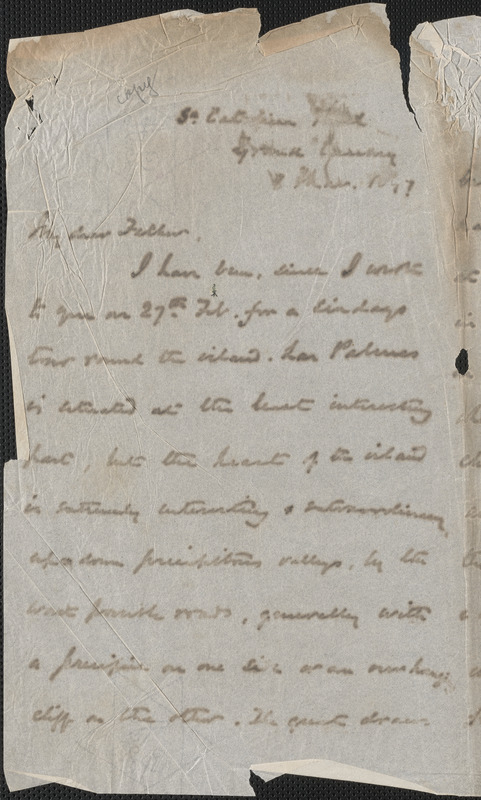 copy
St Catalina Hotel
Grand Canary
8 Mar. 
My dear Father,
I have been, since I wrote
to you on 27th Feb. for a six days
tour round the island. Las Palmas
is situated at the least interesting
part, but the heart of the island
is extremely interesting & extraordinary,
up & down precipitous valleys, by the
worst possible roads, generally with
a precipice on one side or an overhanging
cliff on the other. The great draw